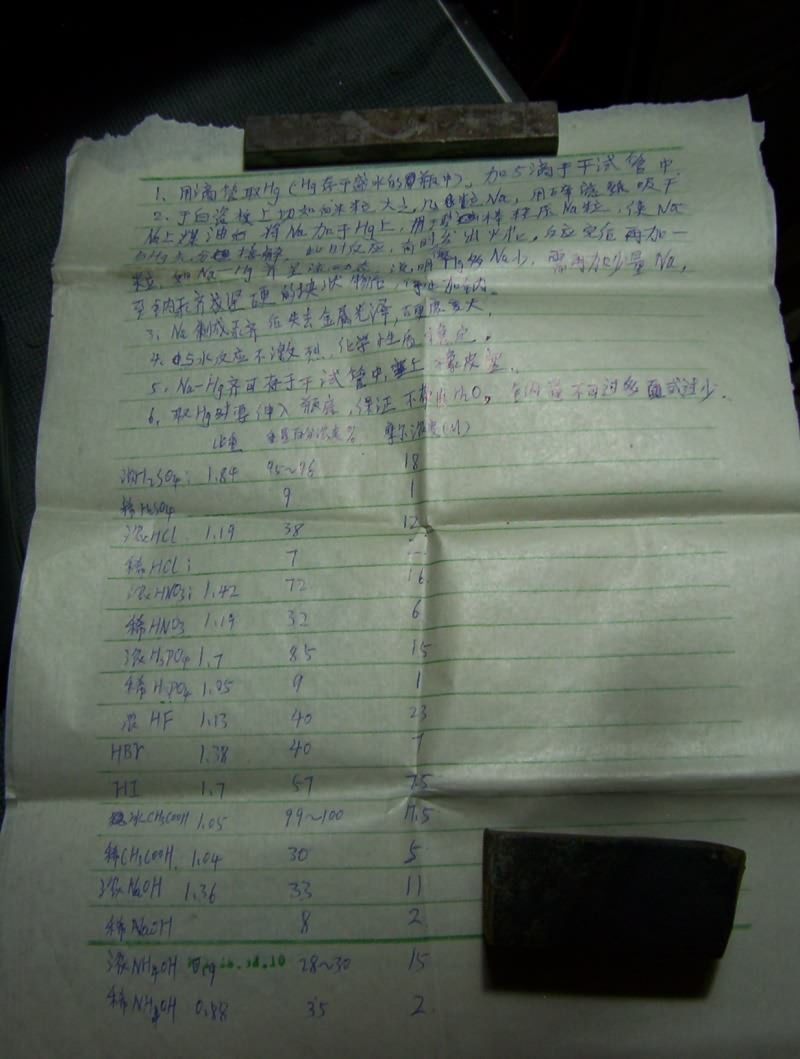 1、用滴管取Hg(Hg存于盛水的瓶中)，加5滴于干试管中.
2、于白瓷板上切如米粒大之几粒Na，用干滤纸吸干
Na上煤油后将Na加于Hg上，用玻棒挤压Na粒，使Na
与Hg充分接触，此时反应，有时发出火花。反应完后再加一
粒，如Na-Hg，说明Hg多Na少，需再加少量Na，
至钠汞齐成坚硬的块状物后，停止加钠.
3、Na制成汞齐后失去金属光泽，硬度变大.
4、与水反应不激烈，化学性质稳定.
5、Na-Hg齐可存于干试管中，塞上橡皮塞.
6、取Hg时要伸入瓶底，保证不带出H2O，钠量不可过多或过少.
比重 重量百分浓度% 摩尔浓度(M)
浓H2SO4: 1.84 95~96 18
稀H2SO4 9 1
浓HCl 1.19 38 12
稀HCl: 7
浓HNO3: 1.42 72 16
稀HNO3 1.19 32 6
浓H3PO4 1.7 85 15
稀H3PO4 1.05 9 1
浓HF 1.13 40 23
HBr 1.38 40 7
HI 1.7 57 7.5
冰CH3COOH 1.05 99~100 17.5
稀CH3COOH 1.04 30 5
浓NaOH 1.36 33 11
稀NaOH 8 2
浓NH4OH 0.9 28~30 15
稀NH4OH 0.88 35 2